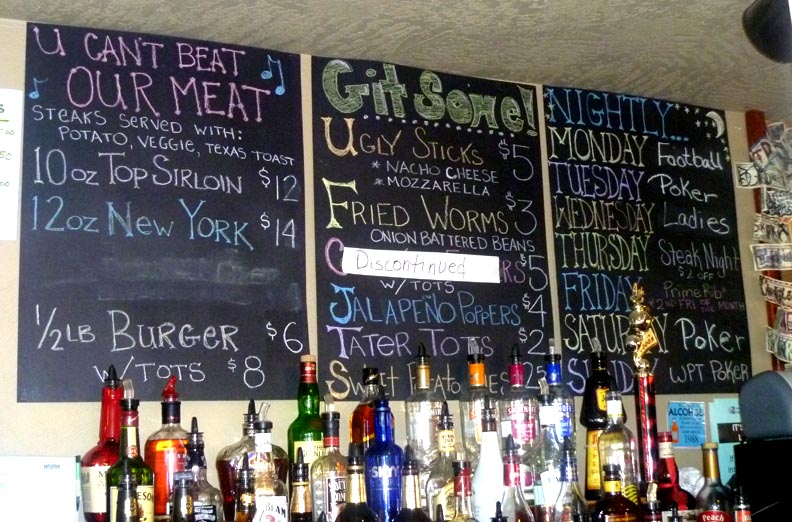 U CAN'T BEAT
OUR MEAT
STEAKS SERVED WITH:
POTATO, VEGGIE, TEXAS TOAST
10 oz TOP SIRLOIN $12
12 oz NEW YORK $14
1/2 LB BURGER $6
W/TOTS $8
Git Some!
UGLY STICKS $5
* NACHO CHEESE
* MOZZARELLA
FRIED WORMS $3
ONION BATTERED BEANS
Discontinued $5
W/ TOTS
JALAPEÑO POPPERS $4
TATER TOTS $2
SWEET POTATO
NIGHTLY...
MONDAY Football
TUESDAY Poker
WEDNESDAY Ladies
THURSDAY Steak Night
$2 OFF
FRIDAY Prime Rib*
*2ND FRI OF THE MONTH
SATURDAY Poker
SUNDAY WPT POKER
ALCOHOL
1988
IT'S
SKYY
BEAM
Peach